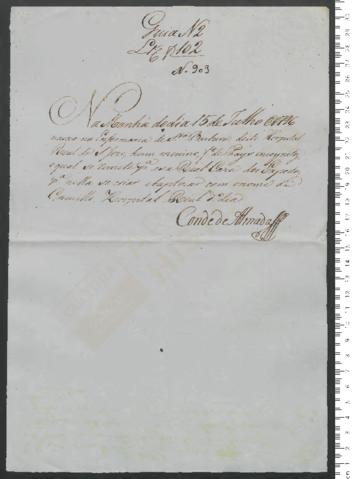 Guia N2
L.º E f 102
N. 903
Na Manhãa do dia 15 de Julho de 18
nasceo na Enfermaria de Sta Barbara deste Hospital
Real de S. Jose, hum menino fº de Pays incognitos
o qual se remete pª a Real Caza dos Expostos
pª nella se criar e baptizar com o nome de
Camillo Hospital Real
Conde de Almada